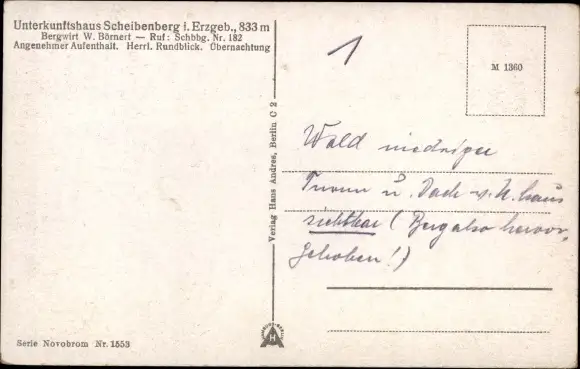 Unterkunftshaus Scheibenberg i. Erzgeb., 833 m
Bergwirt W. Börnert — Ruf: Schbbg. Nr. 182
Angenehmer Aufenthalt. Herrl. Rundblick. Übernachtung
1
M 1360
Verlag Hans Andres, Berlin C 2
Wald niedriger
Turm u. Dach v. U. haus
sichtbar (Berg also hervor,
gehoben!)
H
Serie Novobrom Nr. 1553